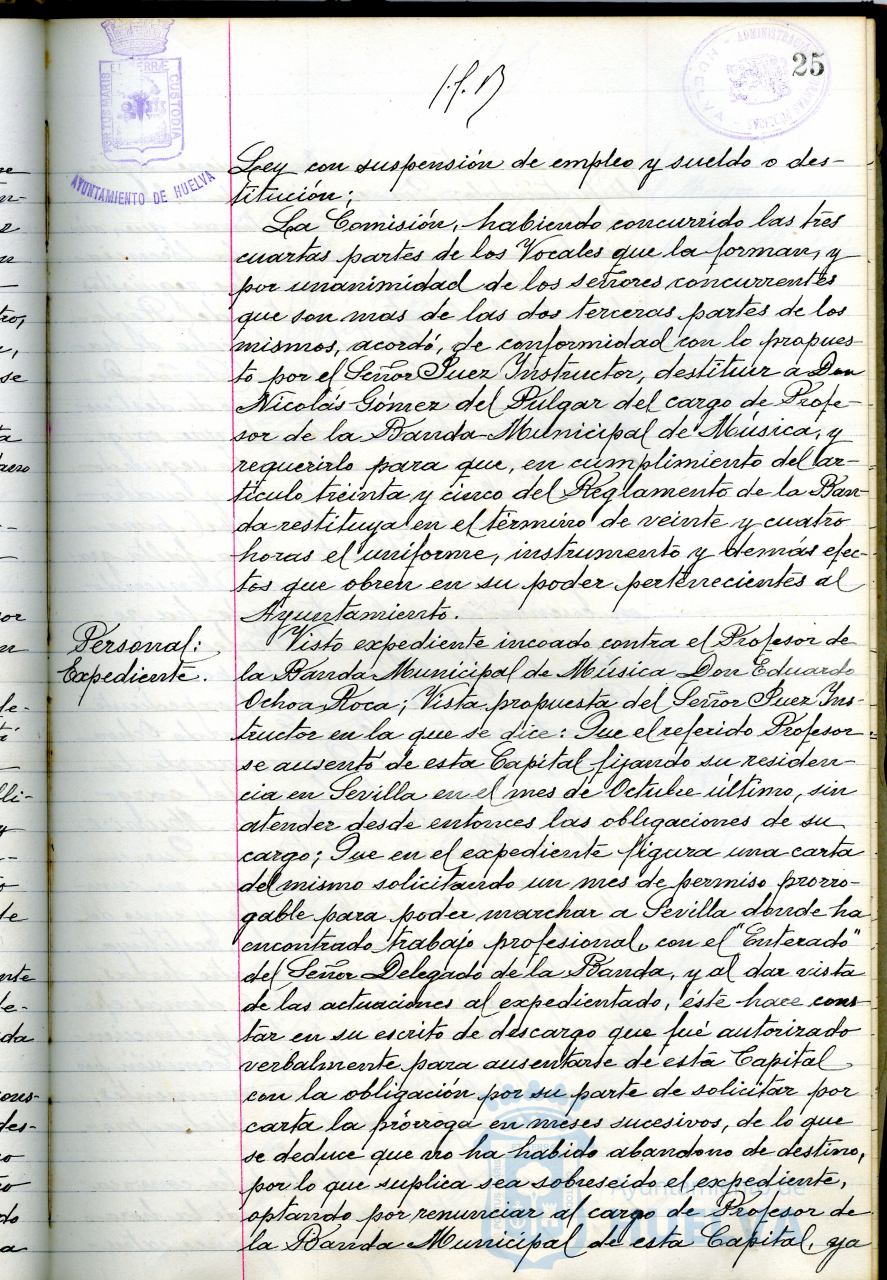 25
PORTUS MARIS ET TERRÆ CUSTODIA
AYUNTAMIENTO DE HUELVA
Ley con suspensión de empleo y sueldo o des-
titución;
La Comisión, habiendo concurrido las tres
cuartas partes de los Vocales que la forman, y
por unanimidad de los señores concurrentes
que son mas de las dos terceras partes de los
mismos, acordó, de conformidad con lo propues-
to por el Señor Juez Instructor, destituir a Don
Nicolás Gómez del Pulgar del cargo de Profe-
sor de la Banda Municipal de Música, y
requerirlo para que, en cumplimiento del ar-
tículo treinta y cinco del Reglamento de la Ban-
da restituya en el término de veinte y cuatro
horas el uniforme, instrumento y demás efec-
tos que obren en su poder pertenecientes al
Ayuntamiento.
Personal:
Expediente.
Visto expediente incoado contra el Profesor de
la Banda Municipal de Música Don Eduardo
Ochoa Roca; Vista propuesta del Señor Juez Ins-
tructor en la que se dice: Que el referido Profesor
se ausentó de esta Capital fijando su residen-
cia en Sevilla en el mes de Octubre último, sin
atender desde entonces las obligaciones de su
cargo; Que en el expediente figura una carta
del mismo solicitando un mes de permiso prorro-
gable para poder marchar a Sevilla donde ha
encontrado trabajo profesional, con el "Enterado"
del Señor Delegado de la Banda, y al dar vista
de las actuaciones al expedientado, éste hace cons-
tar en su escrito de descargo que fué autorizado
verbalmente para ausentarse de esta Capital
con la obligación por su parte de solicitar por
carta la prórroga en meses sucesivos, de lo que
se deduce que no ha habido abandono de destino,
por lo que suplica sea sobreseido el expediente,
optando por renunciar al cargo de Profesor de
la Banda Municipal de esta Capital, ya
Ayuntamiento de
HUELVA